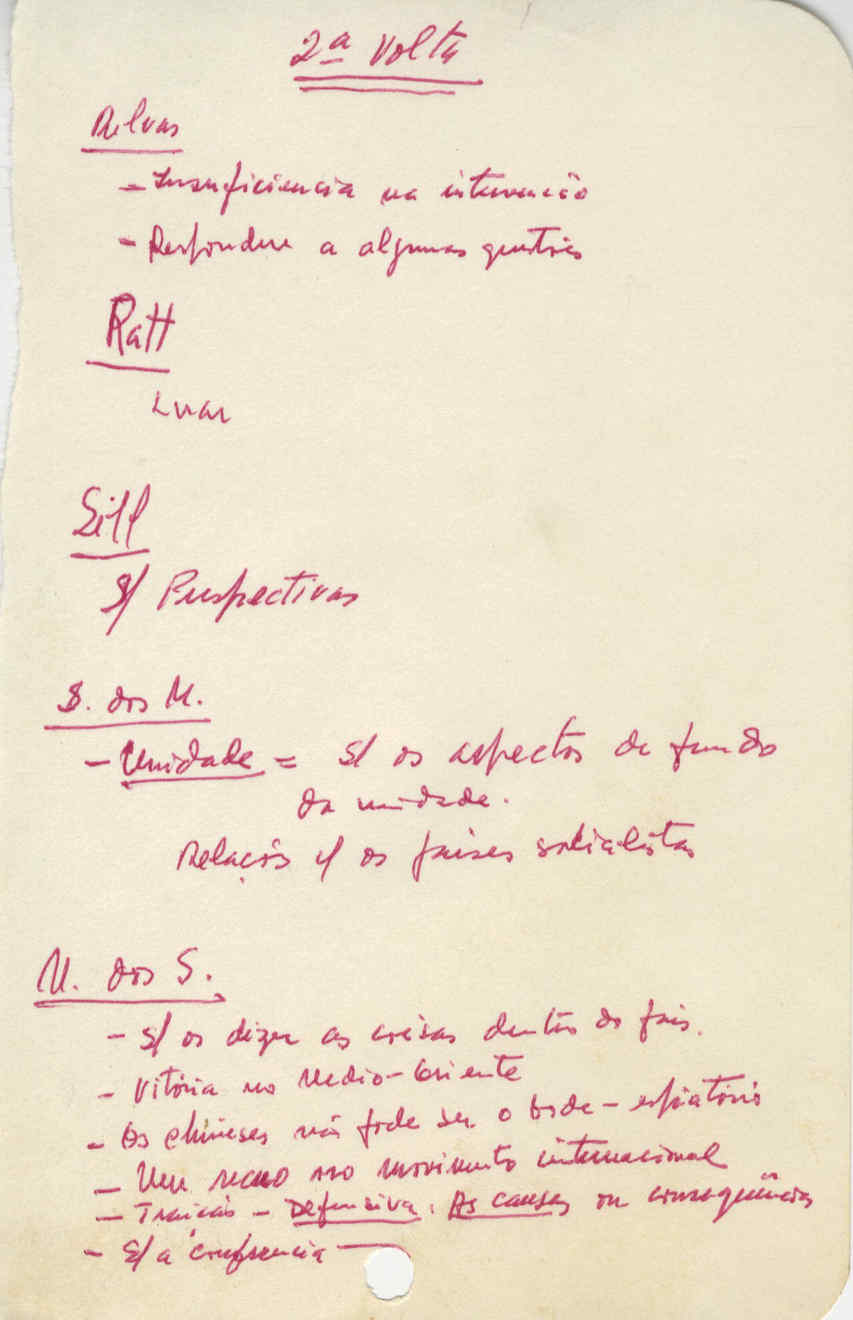 2ª Volta
Relvas
- Insuficiencia na intervenção
- Responder a algumas questões
Ratt
Luar
Gill
S/ Perspectivas
S. dos M.
- Unidade = S/ os aspectos de fundo
da unidade.
Relações c/ os países socialistas
M. dos S.
- S/ os dizer as coisas dentro do país.
- Vitória no Medio-Oriente
- Os chineses não pode ser o bode-expiatório
- Um recuo no movimento internacional
- Traição - Defensiva. As causas ou consequências
- S/ a conferencia